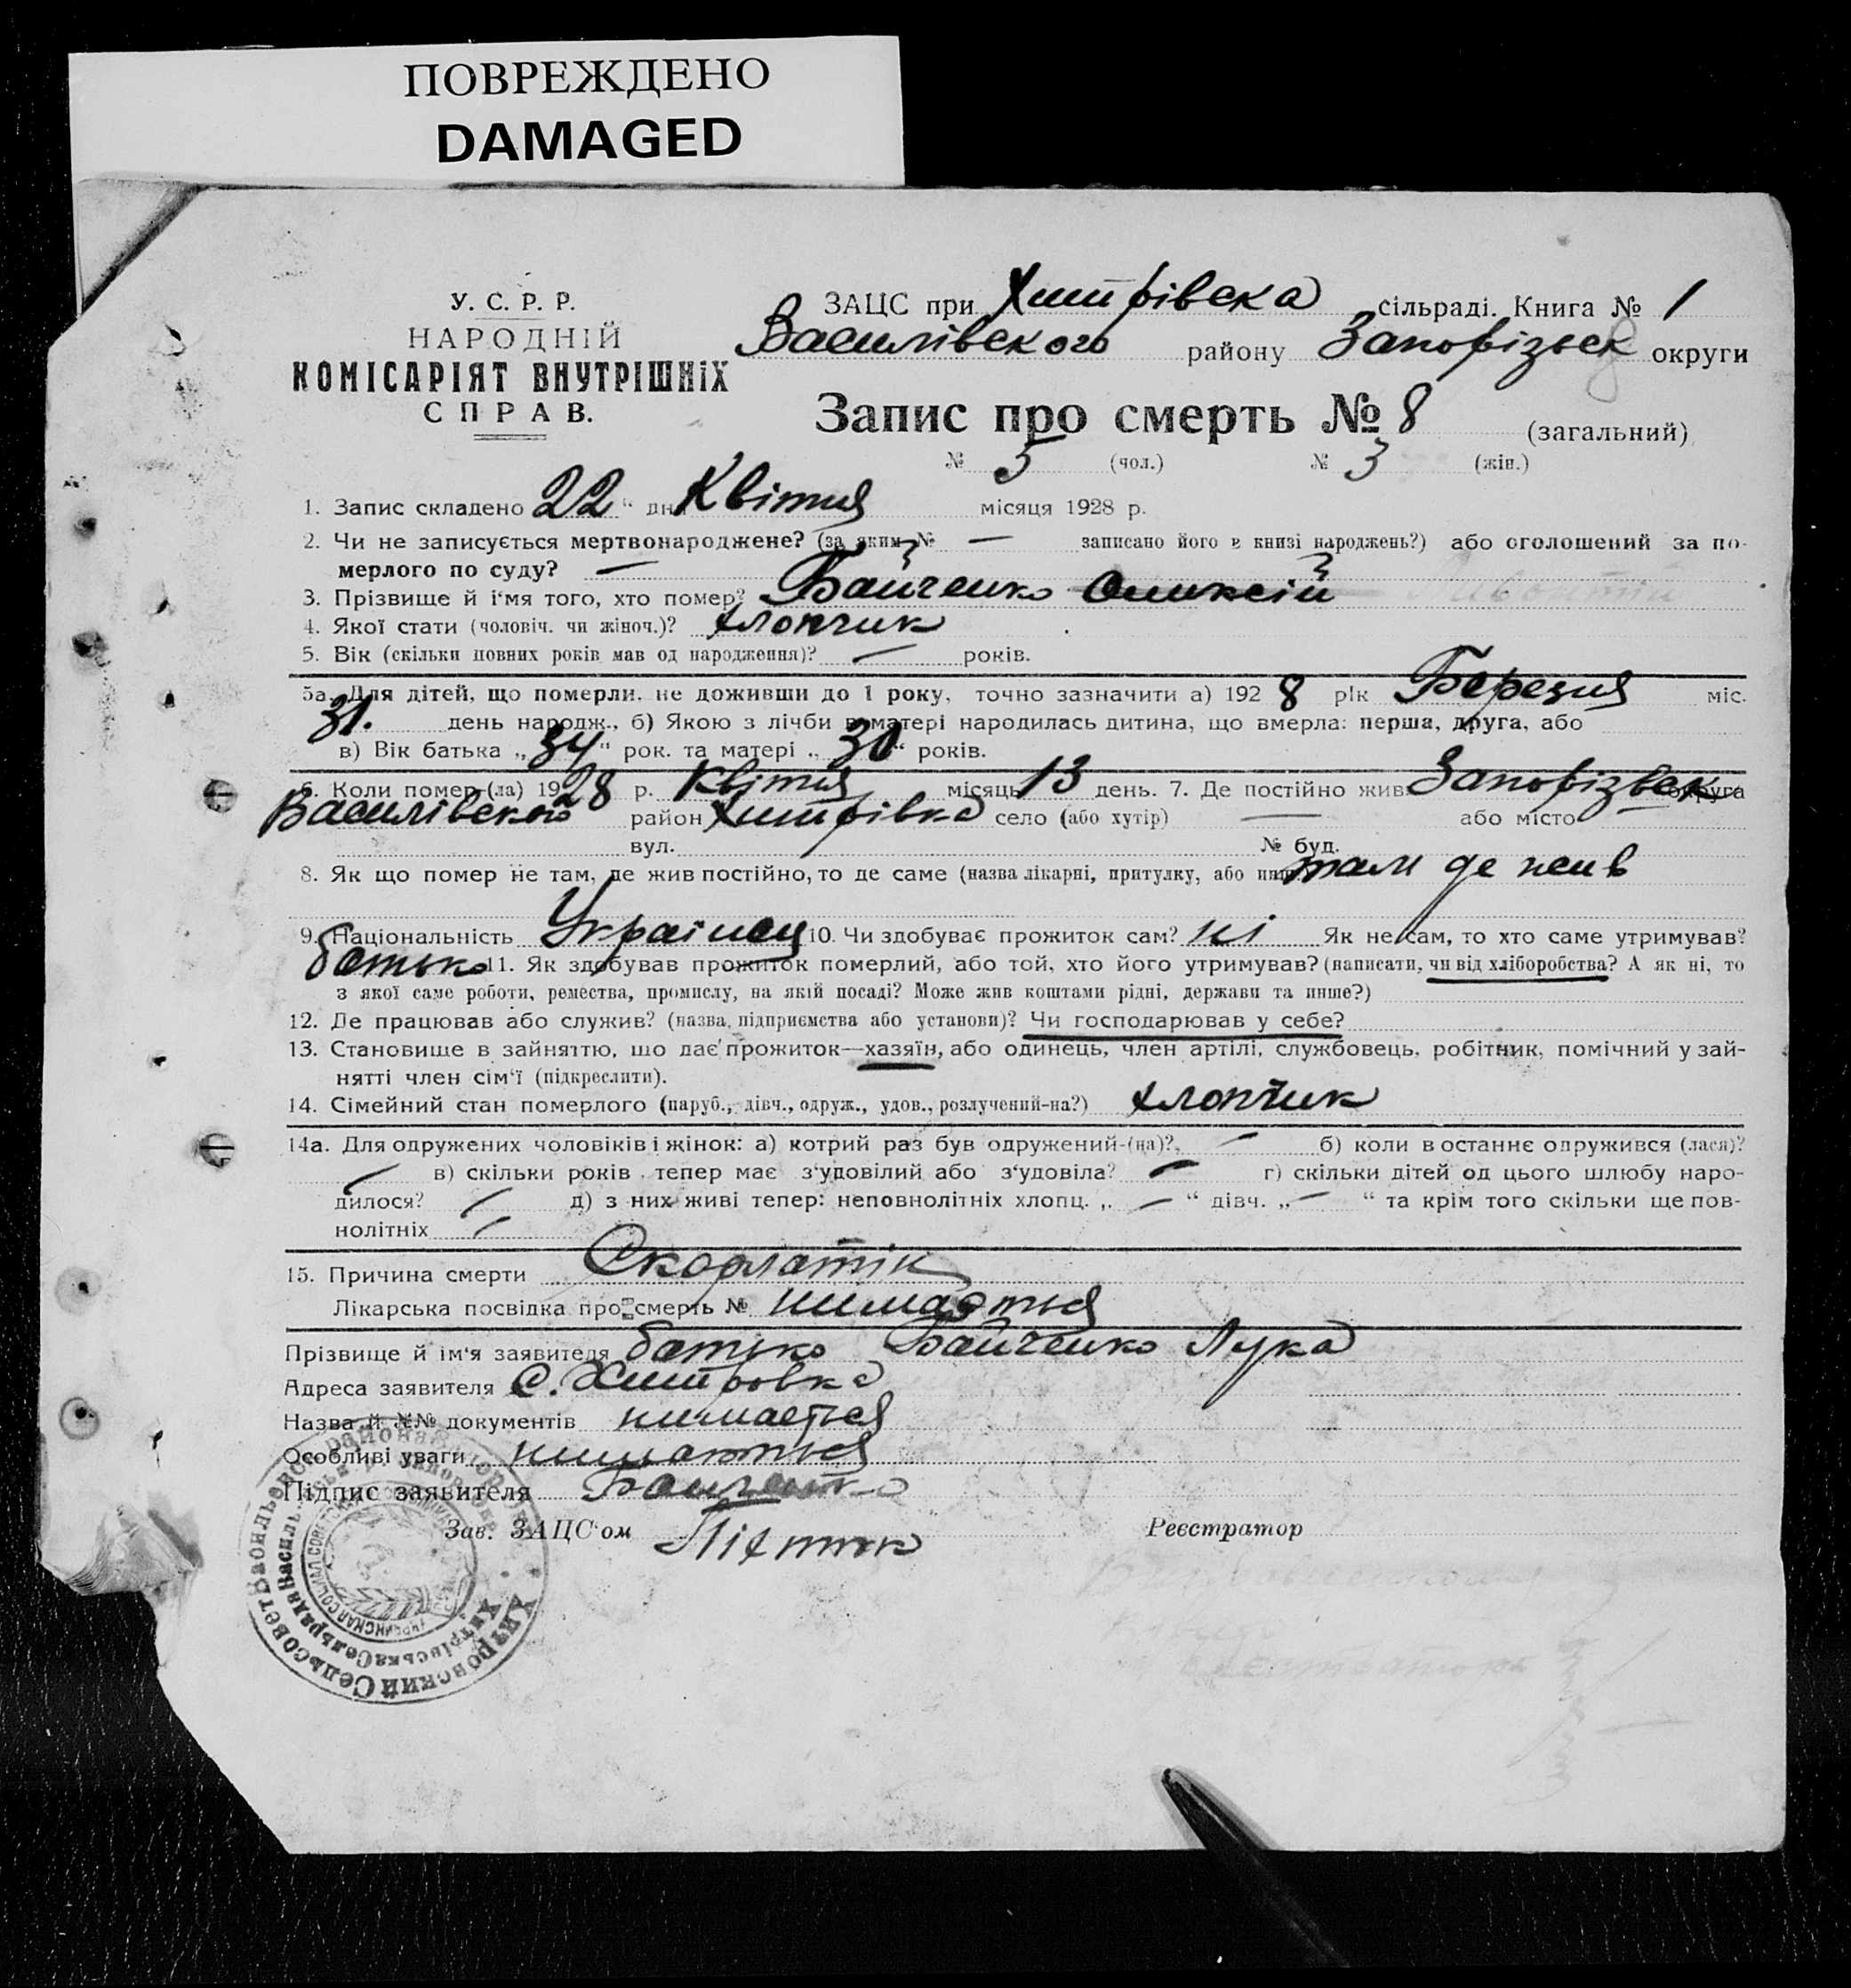 ПОВРЕЖДЕНО
DAMAGED
У. С. Р. Р.
НАРОДНІЙ
КОМІСАРІЯТ ВНУТРІШНІХ
СПРАВ.
ЗАЦС при Хитрівска сільраді. Книга № 1
Василівского району Запорізьск округи
Запис про смерть № 8 (загальний)
№ 5 (чол.) № 3 (жін.)
1. Запис складено 22 " дня Квітня місяця 1928 р.
2. Чи не записується мертвонароджене? (за яким № — записано його в книзі народжень?) або оголошений за по-
мерлого по суду? —
3. Прізвище й і'мя того, хто помер? Байченко Олексій
4. Якої стати (чоловіч. чи жіноч.)? хлопчик
5. Вік (скільки повних років мав од народження)? — років.
5а. Для дітей, що померли, не доживши до 1 року, точно зазначити а) 192 8 рік Березня міс.
31. день народж., б) Якою з лічби в матері народилась дитина, що вмерла: перша, друга, або
в) Вік батька „ 34 " рок. та матері „ 30 " років.
6. Коли помер-(ла) 1928 р. Квітня місяць 13 день. 7. Де постійно жив: Запорізьск округа
Василівского район Хитрівка село (або хутір) — або місто —
вул. № буд.
8. Як що помер не там, де жив постійно, то де саме (назва лікарні, притулку, або инш. там де жив
9. Національність Українец 10. Чи здобуває прожиток сам? ні Як не сам, то хто саме утримував?
батько 11. Як здобував прожиток померлий, або той, хто його утримував? (написати, чи від хліборобства? А як ні, то
з якої саме роботи, ремества, промислу, на якій посаді? Може жив коштами рідні, держави та инше?)
12. Де працював або служив? (назва підприємства або установи)? Чи господарював у себе?
13. Становище в зайняттю, що дає прожиток—хазяїн, або одинець, член артілі, службовець, робітник, помічний у зай-
нятті член сім'ї (підкреслити).
14. Сімейний стан померлого (паруб., дівч., одруж., удов., розлучений-на?) хлопчик
14а. Для одружених чоловіків і жінок: а) котрий раз був одружений-(на)? — б) коли востаннє одружився (лася)?
— в) скільки років тепер має з'удовілий або з'удовіла? — г) скільки дітей од цього шлюбу наро-
дилося? — д) з них живі тепер: неповнолітніх хлопц. „ — " дівч. „ — " та крім того скільки ще пов-
нолітніх —
15. Причина смерти Скорлатін
Лікарська посвідка про смерть № нимається
Прізвище й ім'я заявителя батько Байченко Лука
Адреса заявителя С. Хитровка
Назва й №№ документів нимається
Особливі уваги нимається
Підпис заявителя Байченко
Зав. ЗАЦС'ом
Реєстратор
Хитровский Сельсовет Васильевск района
Хитрівська Сельрада Василь